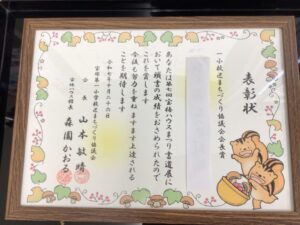 表彰状
一小校区まちづくり協議会会長賞
あなたは第七回宝梅ハウスまつり書道展に
おいて頭書の成績をおさめられたので
これを賞します
今後も努力を重ねますます上達される
ことを期待します
令和七年十月二十六日
宝塚第一小学校区まちづくり協議会
会長 山本敏晴
宝梅ハウス館長
森園かおる